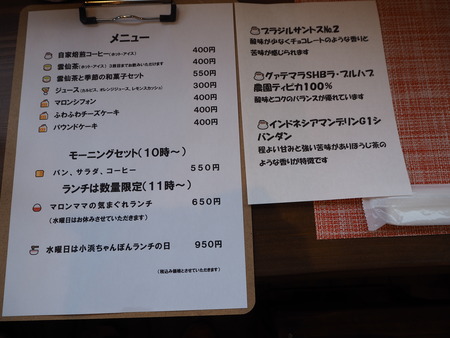 メニュー
自家焙煎コーヒー(ホット・アイス) 400円
雲仙茶(ホット・アイス) 3煎目までお飲みいただけます 400円
雲仙茶と季節の和菓子セット 550円
ジュース(カルピス、オレンジジュース、レモンスカッシュ) 300円
マロンシフォン 400円
ふわふわチーズケーキ 400円
パウンドケーキ 400円
モーニングセット(10時~)
パン、サラダ、コーヒー 550円
ランチは数量限定(11時~)
マロンママの気まぐれランチ 650円
(水曜日はお休みさせていただきます)
水曜日は小浜ちゃんぽんランチの日 950円
(税込み価格とさせていただきます)
ブラジルサントスNo.2
酸味が少なくチョコレートのような香りと
苦味が感じられます
グァテマラSHBラ・ブルハブ
農園ティピカ100%
酸味とコクのバランスが優れています
インドネシアマンデリンG1シ
バンダン
程よい甘みと強い苦味がありほうじ茶の
ような香りが特徴です